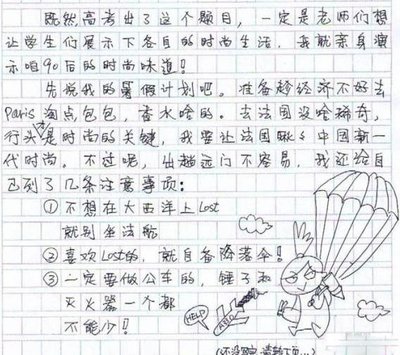 既然高考出了这个题目，一定是老师们想
让学生们展示下各自的时尚生活，我就亲身演
示咱90后的时尚味道！
先说我的暑假计划吧。准备趁经济不好去
Paris淘点包包，香水啥的。去法国没啥稀奇，
行头是时尚的关键，我要让法国瞅瞅中国新一
代时尚。不过呢，出趟远门不容易，我还给自
己列了几条注意事项：
①不想在大西洋上Lost
就别坐法航
②喜欢Lost的，就自备降落伞！
③一定要做公车的，锤子和
灭火器一个都
不能少！！
HELP
A380
(还没写完，请翻下页...)